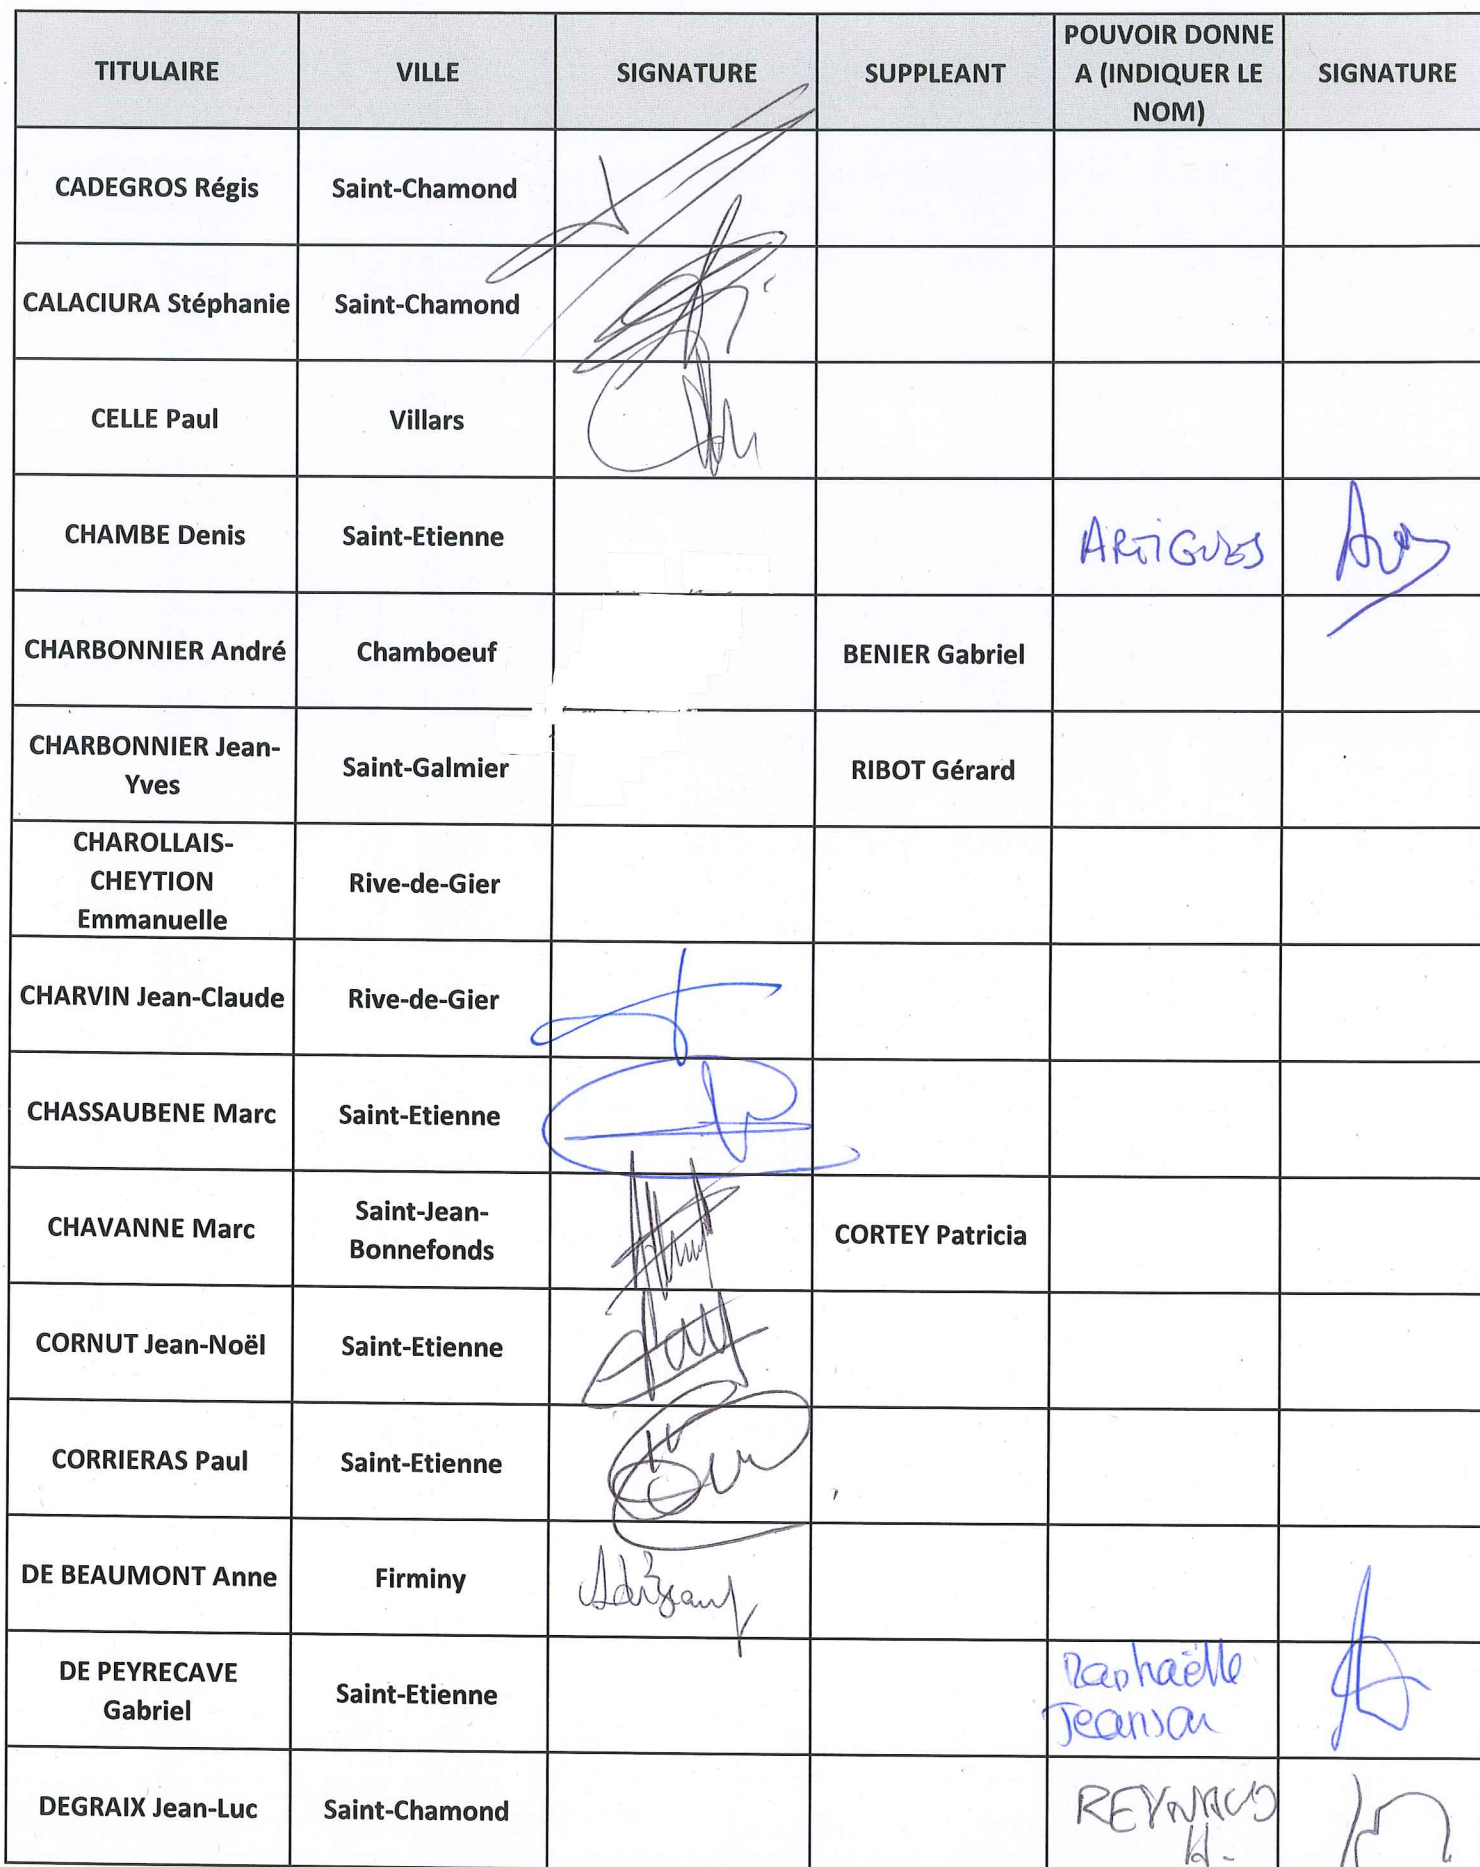 TITULAIRE VILLE SIGNATURE SUPPLEANT POUVOIR DONNE A (INDIQUER LE NOM) SIGNATURE
CADEGROS Régis Saint-Chamond
CALACIURA Stéphanie Saint-Chamond
CELLE Paul Villars
CHAMBE Denis Saint-Etienne ARTIGUES
CHARBONNIER André Chamboeuf BENIER Gabriel
CHARBONNIER Jean-
Yves Saint-Galmier RIBOT Gérard
CHAROLLAIS-
CHEYTION
Emmanuelle Rive-de-Gier
CHARVIN Jean-Claude Rive-de-Gier
CHASSAUBENE Marc Saint-Etienne
CHAVANNE Marc Saint-Jean-
Bonnefonds CORTEY Patricia
CORNUT Jean-Noël Saint-Etienne
CORRIERAS Paul Saint-Etienne
DE BEAUMONT Anne Firminy
DE PEYRECAVE
Gabriel Saint-Etienne Raphaëlle
Jeanson
DEGRAIX Jean-Luc Saint-Chamond REYNAUD
H.